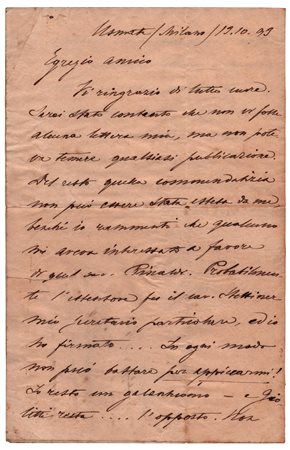 Usmate (Milano) 19.10.99
Egregio amico
Vi ringrazio di tutto cuore.
Sarei stato contento che non vi fosse
alcuna lettera mia, ma non pote
va temere qualsiasi publicazione.
Del resto quella commendatizia
non può essere stata estesa da me
benchè io rammenti che qualcuno
mi aveva interessato a favore
di quel sac. Rinaldi. Probabilmen
te l'estensore fu il cav.
mio secretario particolare, ed io
ho firmato .... In ogni modo
non può bastare per appiccarmi!
Io resto un galantuomo — e Gio
litti resta .... l'opposto. Non